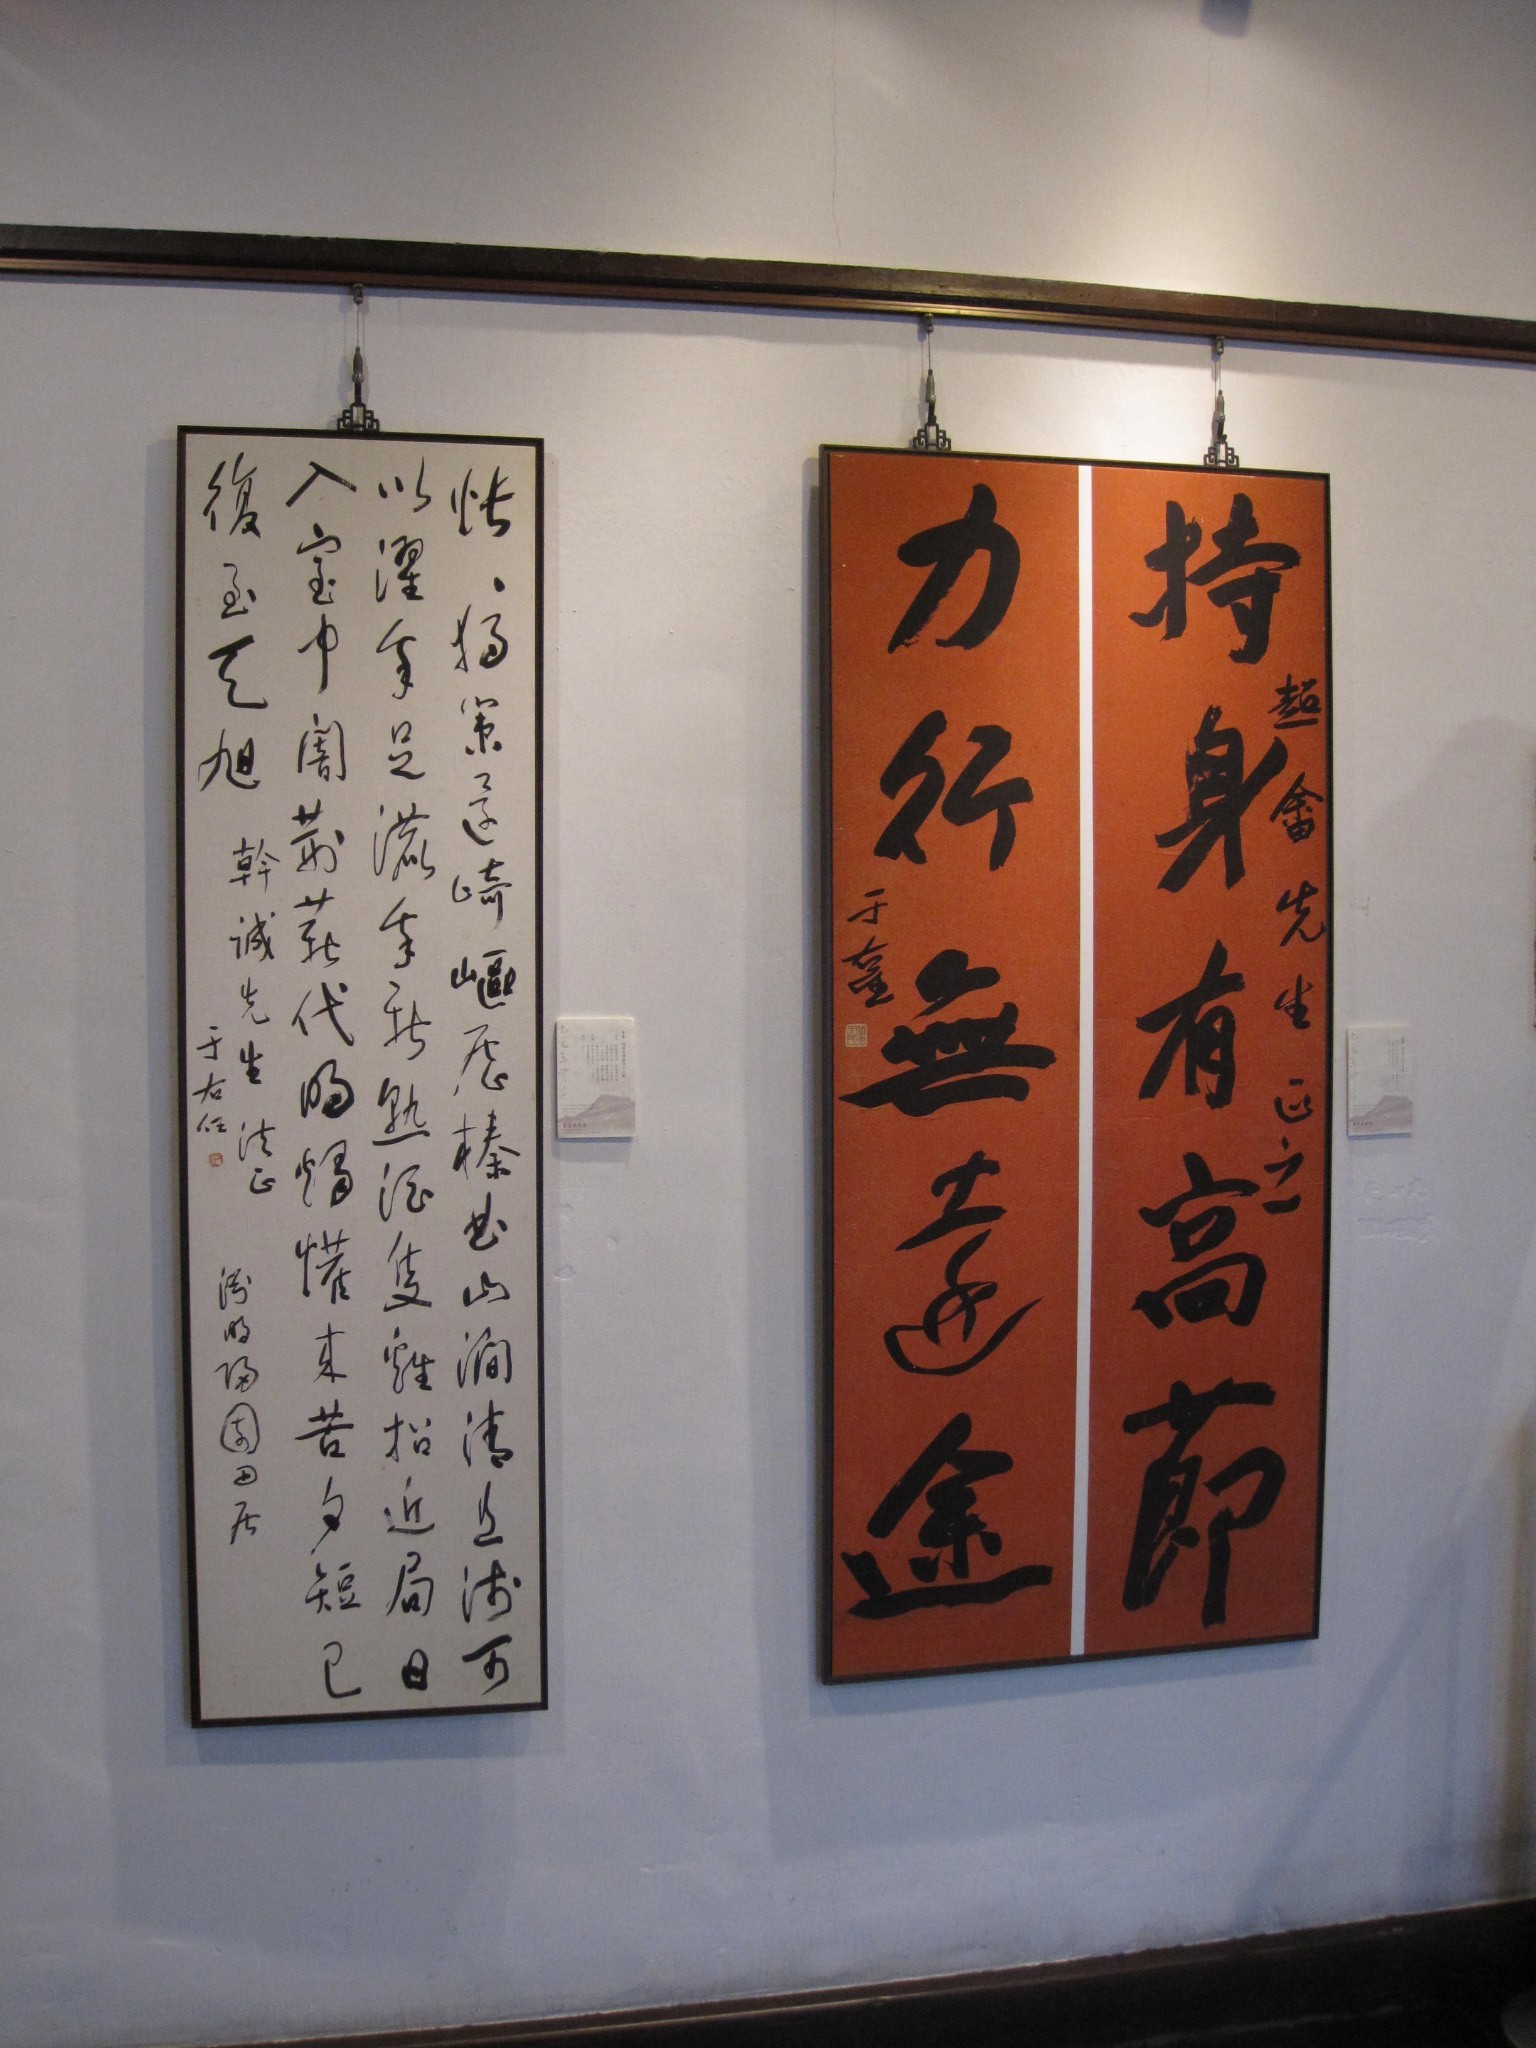 超畬先生正之
持身有高節
力行無遠途
于右任
悵、獨策還崎嶇歷榛曲山澗清且淺可
以濯我足漉我新熟酒隻雞招近局日
入室中闇荊薪代明燭懽來苦夕短已
復至天旭
幹誠先生法正
于右任
淵明歸園田居